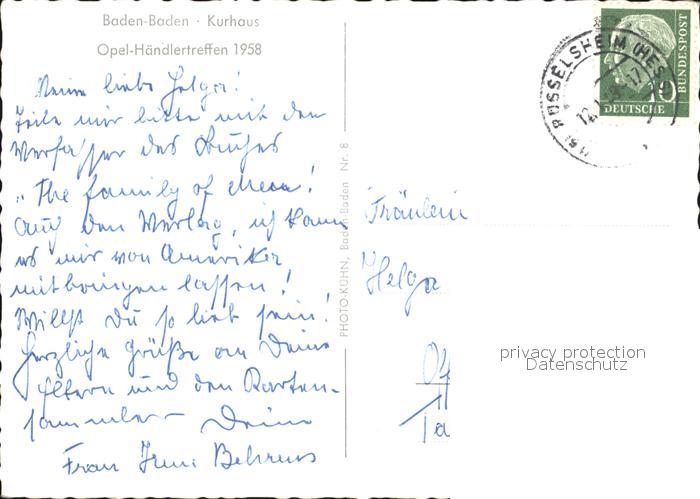 Baden-Baden · Kurhaus
Opel-Händlertreffen 1958
Meine liebe Helga!
Teile mir bitte mit den
Verfasser des Buches
"The family of Men!
auch den Verlag, ich kann
es mir von Amerika
mitbringen lassen!
Willst Du so lieb sein!
Herzliche Grüße an Deine
Eltern und den Karten-
sammler Deine
Frau Irene Behrens
PHOTO-KÜHN, Baden-Baden Nr. 8
DEUTSCHE
BUNDESPOST
10
(16) RÜSSELSHEIM (HESS)
Fräulein
Helga
privacy protection
Datenschutz